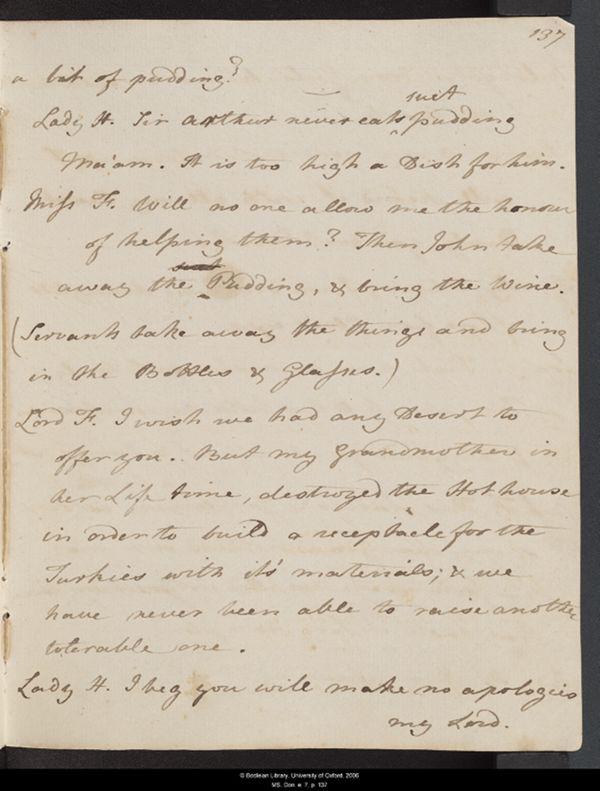 137
a bit of pudding?
Lady H. Sir Arthur never eats suet pudding
Ma'am. It is too high a Dish for him.
Miss F. Will no one allow me the honour
of helping them? Then John take
away the suet Pudding, & bring the Wine.
(Servants take away the things and bring
in the Bottles & Glasses.)
Lord F. I wish we had any Desert to
offer you. But my Grandmother in
her Life time, destroyed the Hothouse
in order to build a receptacle for the
Turkies with it's materials; & we
have never been able to raise another
tolerable one.
Lady H. I beg you will make no apologies
my Lord.
© Bodleian Library, University of Oxford, 2006
MS. Don. e. 7, p. 137